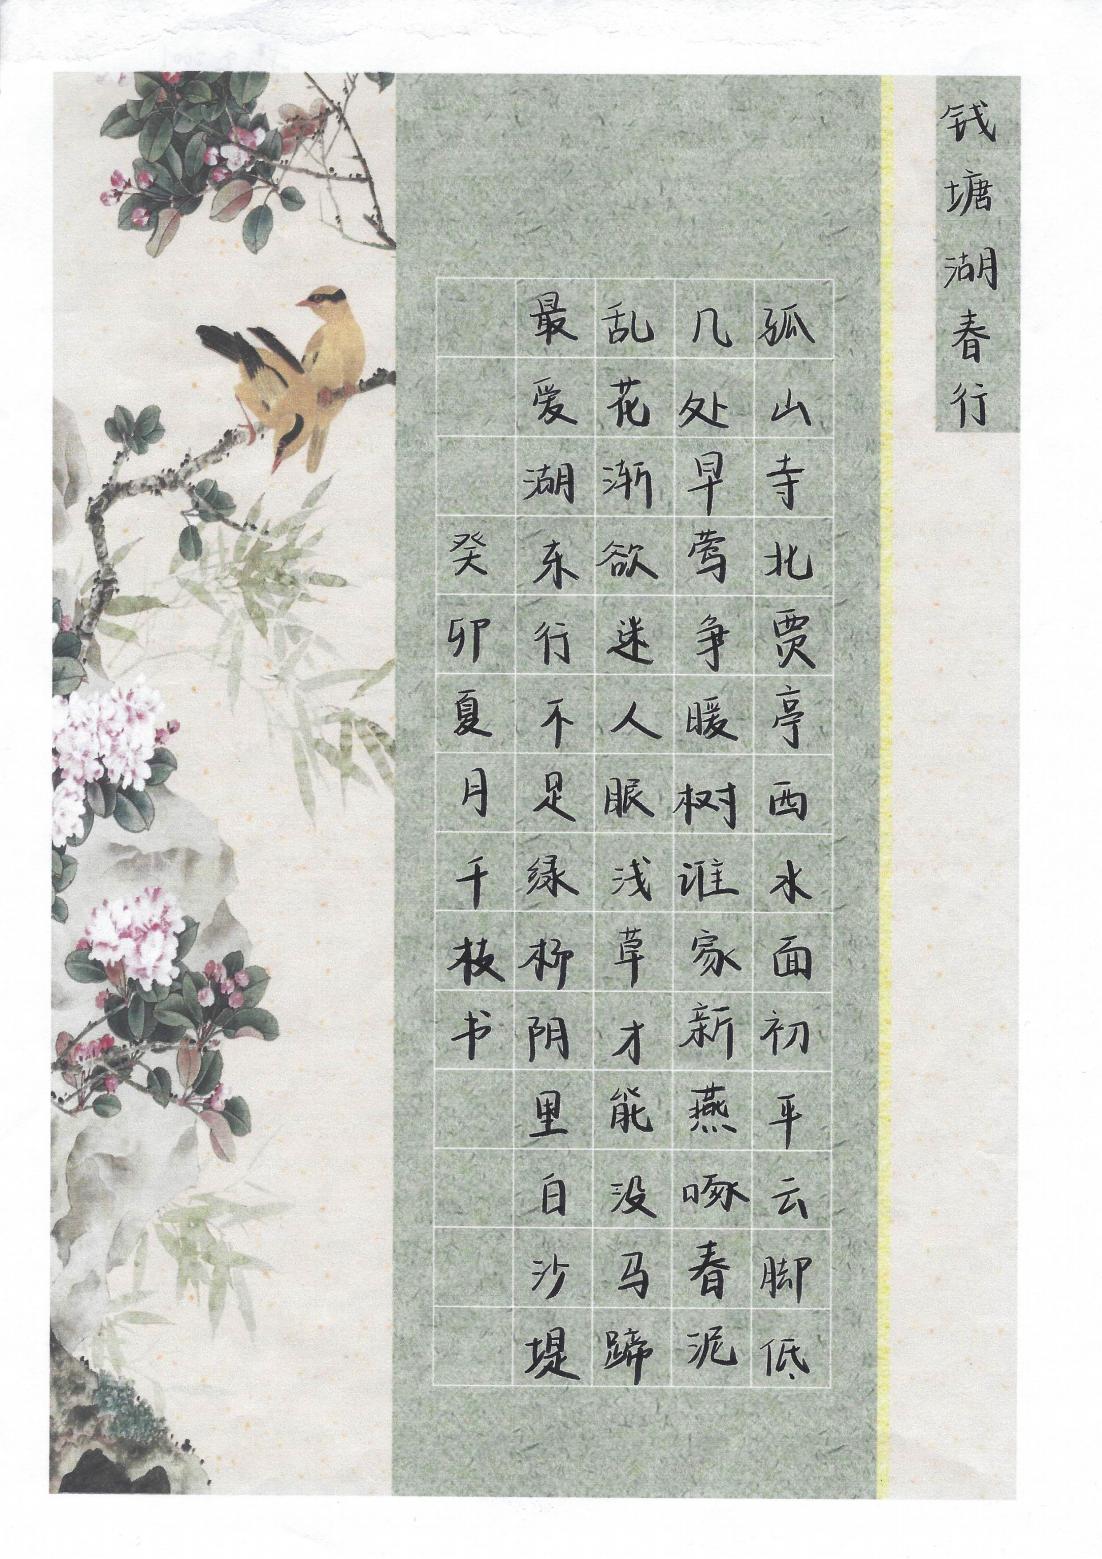 钱塘湖春行
孤山寺北贾亭西水面初平云脚低
几处早莺争暖树谁家新燕啄春泥
乱花渐欲迷人眼浅草才能没马蹄
最爱湖东行不足绿柳阴里白沙堤
癸卯夏月千枝书